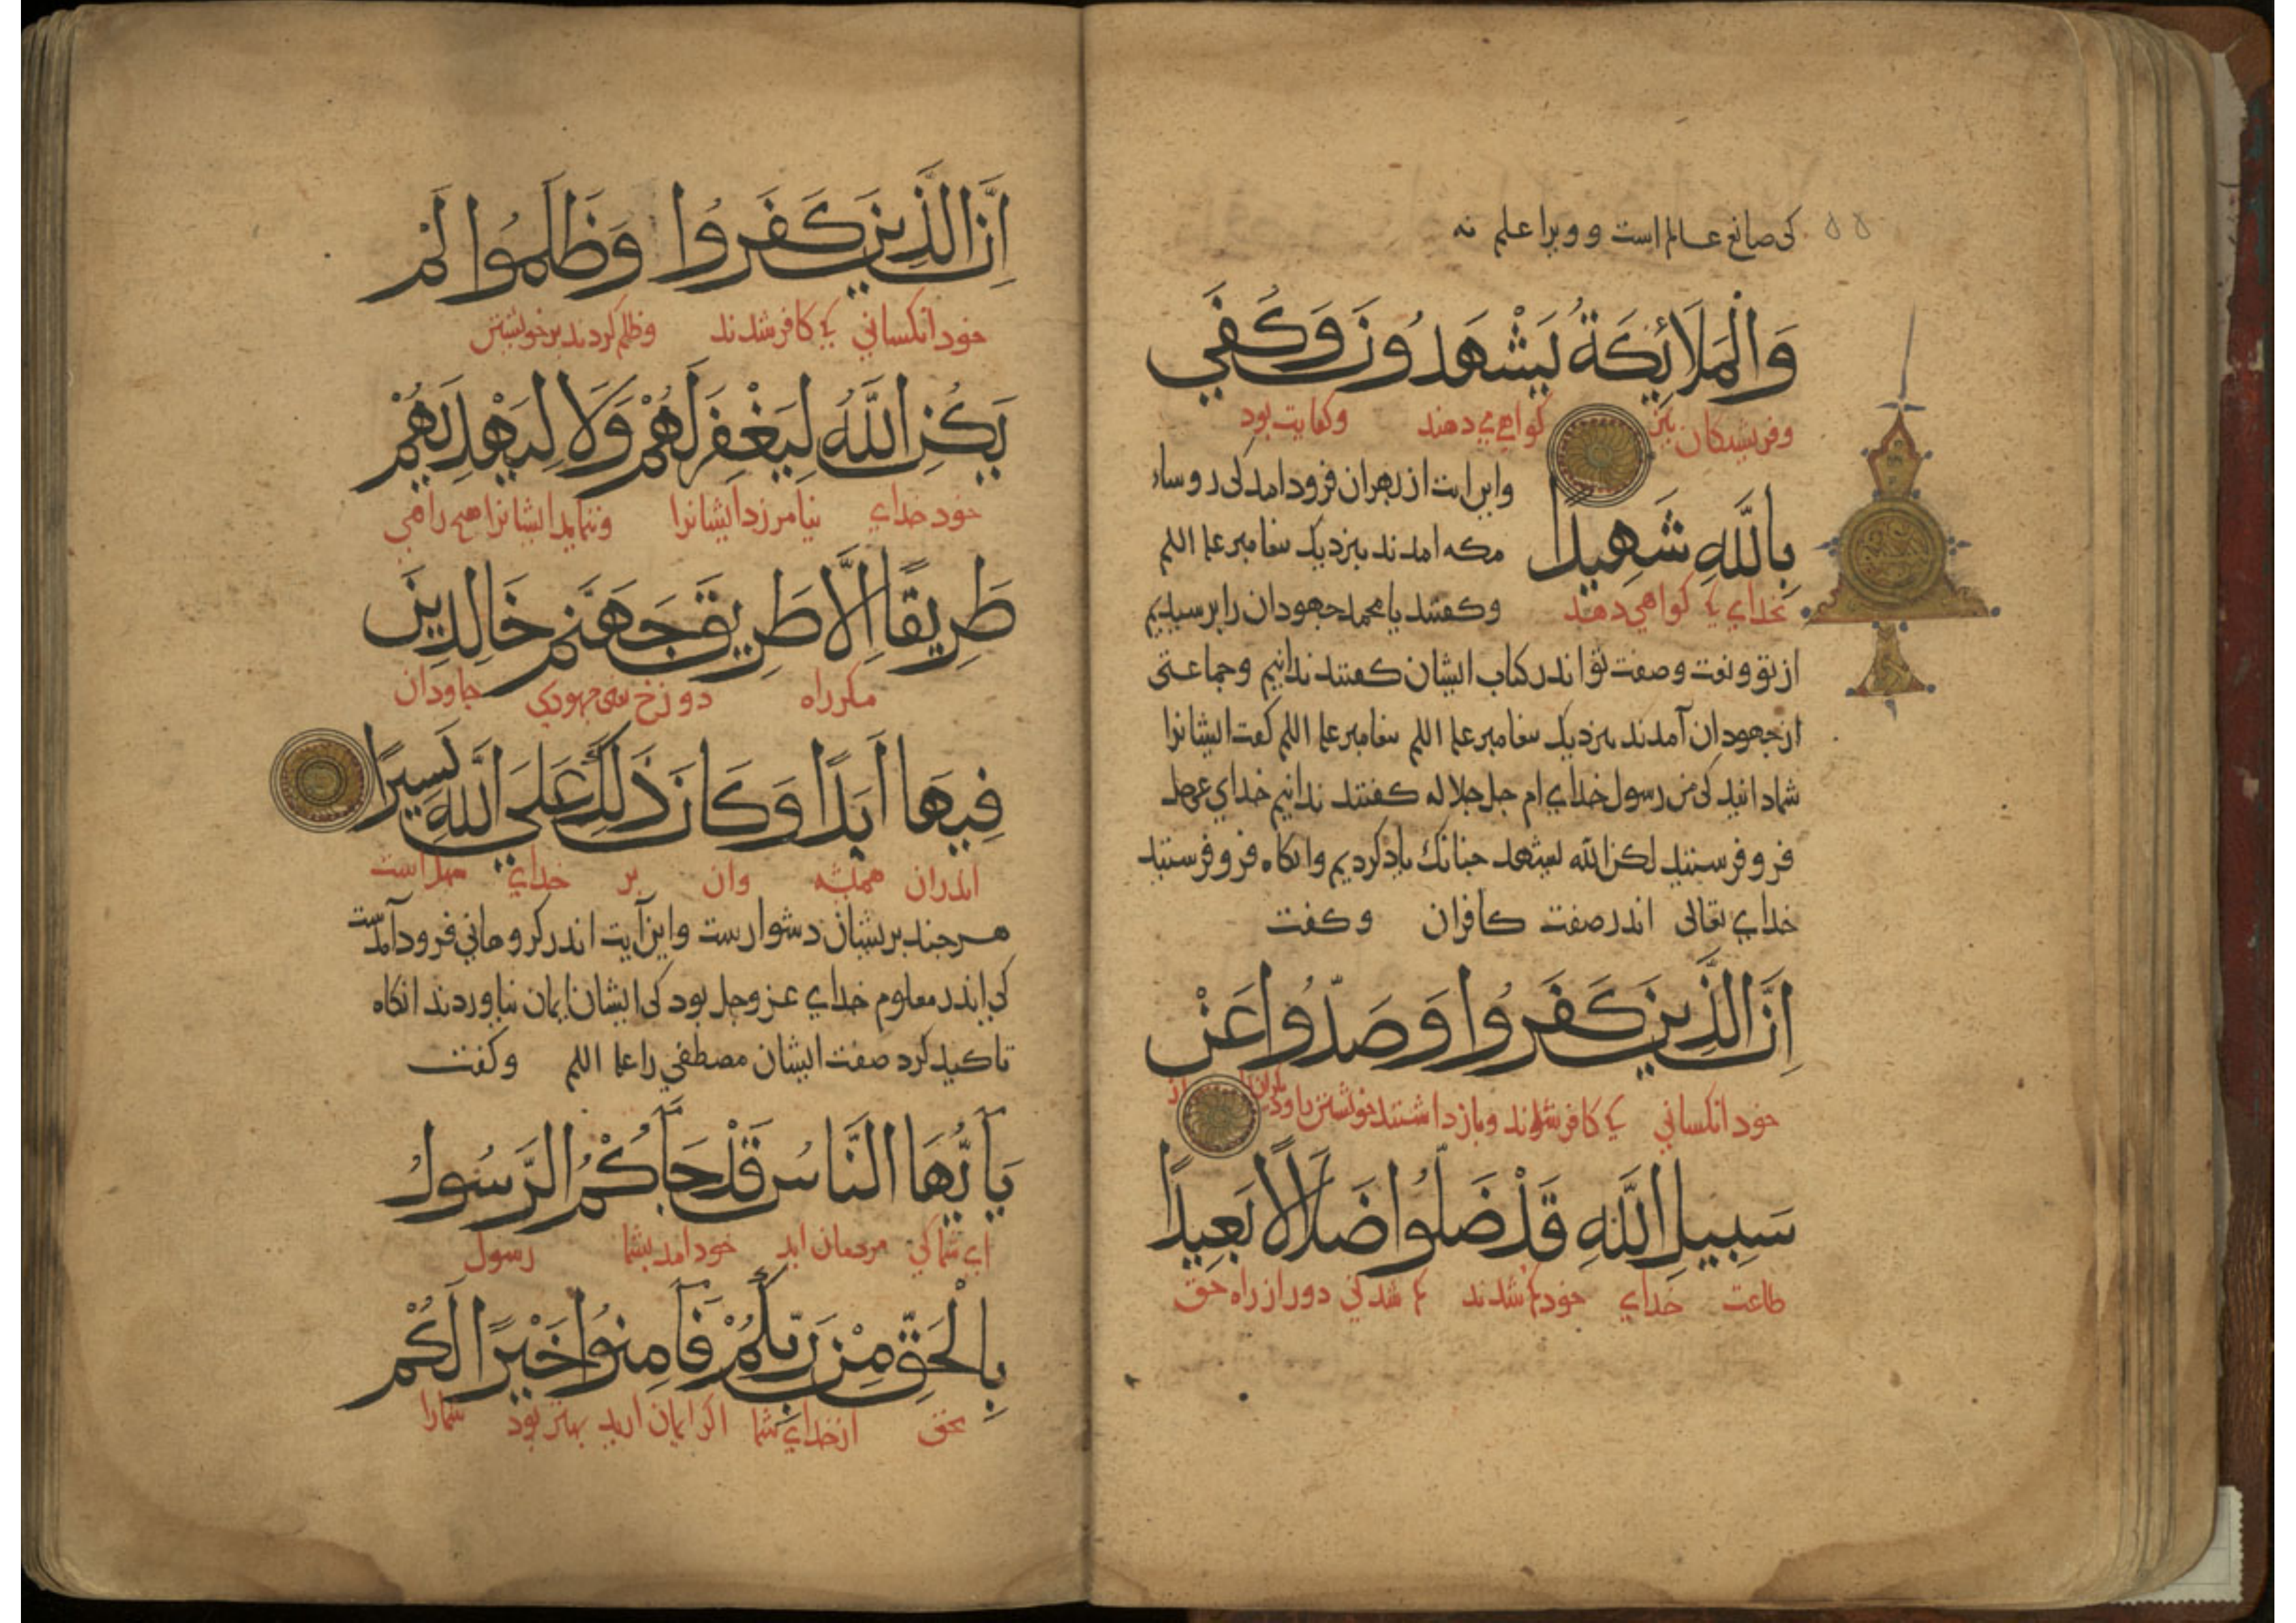 کی صانع عالم است و ویرا علم نه
وَالْمَلَائِكَةُ يَشْهَدُونَ وَكَفَى
وفریشتکان نیز کواهی می دهند وکفایت بود
بِاللَّهِ شَهِيدًا
بخدای کی کواهی دهد
واین ایت از بهر ان فرود امد کی روساء
مکه امدند بنزدیک بیغامبر علیه السلم
وکفتند یا محمد جهودان را برسیدیم
از تو ونعت وصفت تو اندر کتاب ایشان کفتند ندانیم وجماعتی
از جهودان آمدند بنزدیک بیغامبر علیه السلم بیغامبر علیه السلم کفت ایشانرا
شما دانید کی من رسول خدای ام جل جلاله کفتند ندانیم خدای عز وجل
فرو فرستید لكن الله يشهد جنانک یاذ کردیم وانکاه فرو فرستید
خدای تعالی اندر صفت کافران وکفت
اِنَّ الَّذِينَ كَفَرُوا وَصَدُّوا عَنْ
خود انکسانی کی کافر شدند وباز داشتند خویشتن را از
سَبِيلِ اللَّهِ قَدْ ضَلُّوا ضَلَالًا بَعِيدًا
طاعت خدای خود کم شدند کم شدنی دور از راه حق
اِنَّ الَّذِينَ كَفَرُوا وَظَلَمُوا لَمْ
خود انکسانی کی کافر شدند وظلم کردند بر خویشتن
يَكُنِ اللَّهُ لِيَغْفِرَ لَهُمْ وَلَا لِيَهْدِيَهُمْ
خود خدای نیامرزد ایشانرا وننماید ایشانرا هیچ راهی
طَرِيقًا اِلَّا طَرِيقَ جَهَنَّمَ خَالِدِينَ
مکر راه دوزخ یعنی جهودی جاودان
فِيهَا اَبَدًا وَكَانَ ذَلِكَ عَلَى اللَّهِ يَسِيرًا
اندران همیشه وان بر خدای سهل است
هرجند بریشان دشوارست واین آیت اندر کروهانی فرود آمدست
کی اندر معلوم خدای عز وجل بود کی ایشان ایمان نیاوردند انکاه
تاکید کرد صفت ایشان مصطفی را علیه السلم وکفت
يَآ اَيُّهَا النَّاسُ قَدْ جَآءَكُمُ الرَّسُولُ
ای شما کی مردمان اید خود امد بشما رسول
بِالْحَقِّ مِنْ رَبِّكُمْ فَآمِنُوا خَيْرًا لَكُمْ
بحق از خدای شما اکر ایمان ارید بهتر بود شمارا